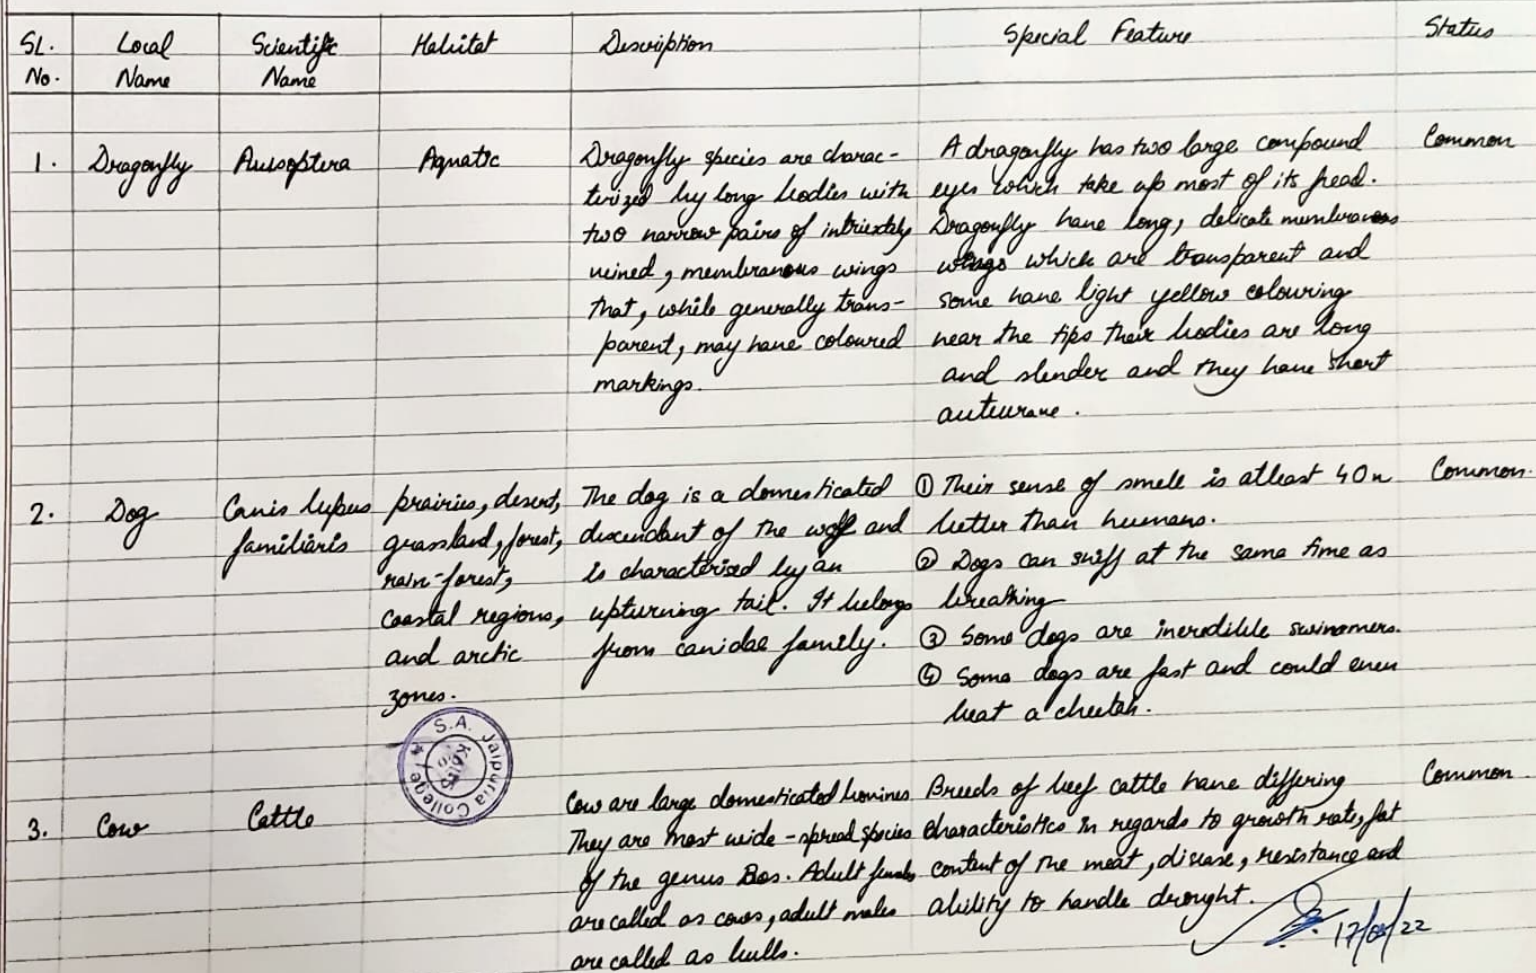 SL. No.
Local Name
Scientific Name
Habitat
Description
Special Feature
Status
1.
Dragonfly
Anisoptera
Aquatic
Dragonfly species are charac-
terized by long bodies with
two narrow pairs of intricately
veined, membranous wings
that, while generally trans-
parent, may have coloured
markings.
A dragonfly has two large compound
eyes which take up most of its head.
Dragonfly have long, delicate membranous
wings which are transparent and
some have light yellow colouring
near the tips their bodies are long
and slender and they have short
Common
2.
Dog
Canis lupus
familiaris
prairies, desert,
grassland, forest,
rain-forest,
coastal regions,
and arctic
zones.
The dog is a domesticated
descendant of the wolf and
is characterised by an
upturning tail. It belongs
from canidae family.
① Their sense of smell is atleast 40x
better than humans.
② Dogs can sniff at the same time as
breathing
③ Some dogs are incredible swimmers.
④ Some dogs are fast and could even
beat a cheetah.
Common.
S.A. Jaipuria College
3.
Cow
Cattle
Cow are large domesticated bovines
They are most wide-spread species
of the genus Bos. Adult females
are called as cows, adult males
are called as bulls.
Breeds of beef cattle have differing
characteristics in regards to growth rate, fat
content of the meat, disease, resistance and
ability to handle drought.
Common